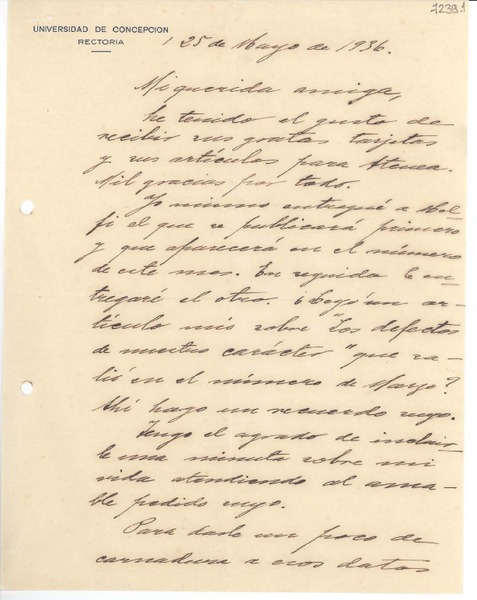 7239.1
UNIVERSIDAD DE CONCEPCION
RECTORIA
25 de Mayo de 1936.
Mi querida amiga,
he tenido el gusto de
recibir sus gratas tarjetas
y sus artículos para Atenea.
Mil gracias por todo.
Yo mismo entregué a Mel-
fi el que se publicará primero
y que aparecerá en el número
de este mes. En seguida le en-
tregaré el otro. ¿Leyó un ar-
tículo mío sobre "Los defectos
de nuestro carácter" que sa-
lió en el número de Marzo?
Ahí hago un recuerdo suyo.
Tengo el agrado de incluir-
le una minuta sobre mi
vida atendiendo al ama-
ble pedido suyo.
Para darle un poco de
carnadura a esos datos